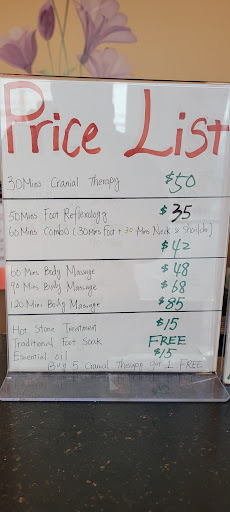 Price List
30 Mins Cranial Therapy $50
50 Mins Foot Reflexology $35
60 Mins Combo (30 Mins Foot + 30 Mins Neck & Shoulder)
$42
60 Min Body Massage $48
90 Min Body Massage $68
120 Min Body Massage $85
Hot Stone Treatment $15
Traditional Foot Soak FREE
Essential oil $15
Buy 5 Cranial Therapy get 1 FREE